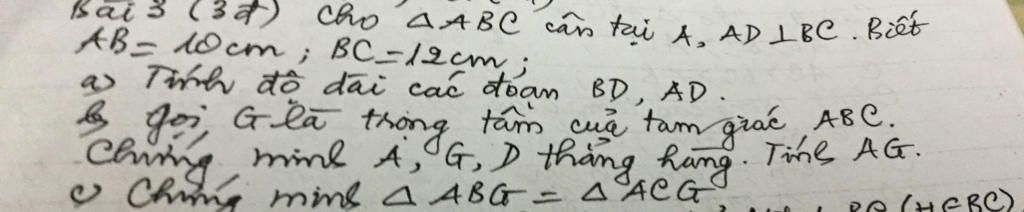 Bài 3 (3đ) Cho △ABC cân tại A, AD⊥BC. Biết
AB=10cm; BC=12cm;
a) Tính độ dài các đoạn BD, AD.
b, Gọi G là trọng tâm của tam giác ABC.
Chứng minh A, G, D thẳng hàng. Tính AG.
c) Chứng minh △ABG = △ACG
(H∈BC)